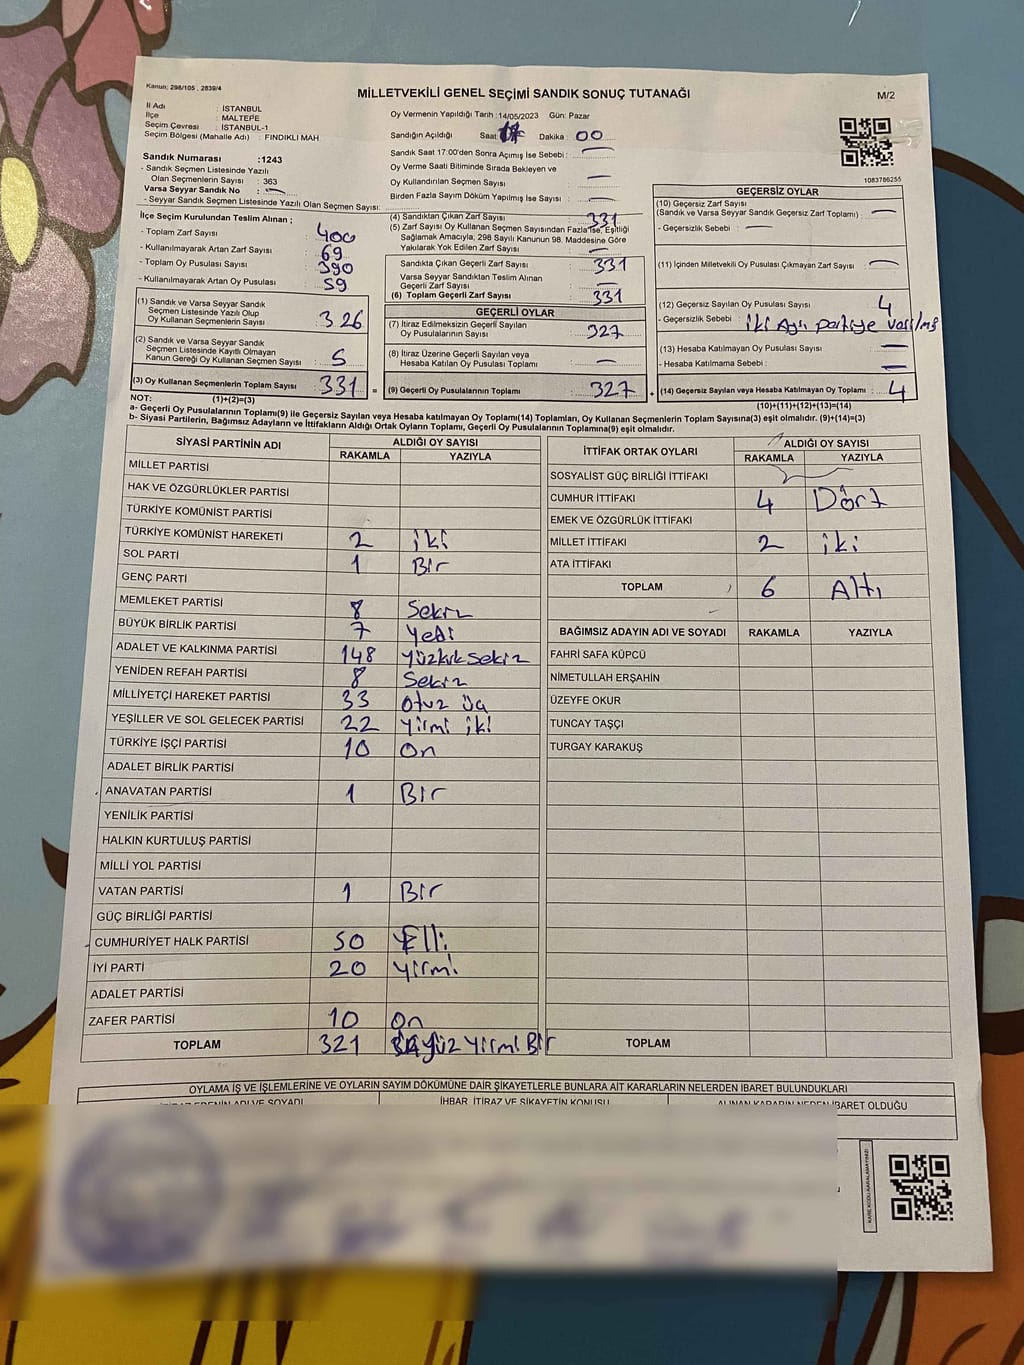 Kanun; 298/105 , 2839/4
MİLLETVEKİLİ GENEL SEÇİMİ SANDIK SONUÇ TUTANAĞI
M/2
İl Adı : İSTANBUL
İlçe : MALTEPE
Seçim Çevresi : İSTANBUL-1
Seçim Bölgesi (Mahalle Adı) : FINDIKLI MAH
Sandık Numarası :1243
- Sandık Seçmen Listesinde Yazılı
Olan Seçmenlerin Sayısı : 363
Varsa Seyyar Sandık No : —
- Seyyar Sandık Seçmen Listesinde Yazılı Olan Seçmen Sayısı:
Oy Vermenin Yapıldığı Tarih :14/05/2023 Gün: Pazar
Sandığın Açıldığı Saat: 17 Dakika : 00
Sandık Saat 17:00'den Sonra Açımış İse Sebebi : —
Oy Verme Saati Bitiminde Sırada Bekleyen ve
Oy Kullandırılan Seçmen Sayısı : —
Birden Fazla Sayım Döküm Yapılmış İse Sayısı : —
1083786255
İlçe Seçim Kurulundan Teslim Alınan ;
- Toplam Zarf Sayısı : 400
- Kullanılmayarak Artan Zarf Sayısı : 69
- Toplam Oy Pusulası Sayısı : 390
- Kullanılmayarak Artan Oy Pusulası : 59
(1) Sandık ve Varsa Seyyar Sandık
Seçmen Listesinde Yazılı Olup
Oy Kullanan Seçmenlerin Sayısı : 326
(2) Sandık ve Varsa Seyyar Sandık
Seçmen Listesinde Kayıtlı Olmayan
Kanun Gereği Oy Kullanan Seçmen Sayısı : 5
(3) Oy Kullanan Seçmenlerin Toplam Sayısı : 331 =
(4) Sandıktan Çıkan Zarf Sayısı : 331
(5) Zarf Sayısı Oy Kullanan Seçmen Sayısından Fazla ise, Eşitliği
Sağlamak Amacıyla; 298 Sayılı Kanunun 98. Maddesine Göre
Yakılarak Yok Edilen Zarf Sayısı : —
Sandıkta Çıkan Geçerli Zarf Sayısı : 331
Varsa Seyyar Sandıktan Teslim Alınan
Geçerli Zarf Sayısı : —
(6) Toplam Geçerli Zarf Sayısı : 331
GEÇERLİ OYLAR
(7) İtiraz Edilmeksizin Geçerli Sayılan
Oy Pusulalarının Sayısı : 327
(8) İtiraz Üzerine Geçerli Sayılan veya
Hesaba Katılan Oy Pusulası Toplamı : —
(9) Geçerli Oy Pusulalarının Toplamı : 327 +
GEÇERSİZ OYLAR
(10) Geçersiz Zarf Sayısı
(Sandık ve Varsa Seyyar Sandık Geçersiz Zarf Toplamı) : —
- Geçersizlik Sebebi : —
(11) İçinden Milletvekili Oy Pusulası Çıkmayan Zarf Sayısı : —
(12) Geçersiz Sayılan Oy Pusulası Sayısı : 4
- Geçersizlik Sebebi : İki Ayrı partiye
(13) Hesaba Katılmayan Oy Pusulası Sayısı : —
- Hesaba Katılmama Sebebi : —
(14) Geçersiz Sayılan veya Hesaba Katılmayan Oy Toplamı : 4
NOT: (1)+(2)=(3)
(10)+(11)+(12)+(13)=(14)
a- Geçerli Oy Pusulalarının Toplamı(9) ile Geçersiz Sayılan veya Hesaba katılmayan Oy Toplamı(14) Toplamları, Oy Kullanan Seçmenlerin Toplam Sayısına(3) eşit olmalıdır. (9)+(14)=(3)
b- Siyasi Partilerin, Bağımsız Adayların ve İttifakların Aldığı Ortak Oyların Toplamı, Geçerli Oy Pusulalarının Toplamına(9) eşit olmalıdır.
SİYASİ PARTİNİN ADI ALDIĞI OY SAYISI
RAKAMLA YAZIYLA
MİLLET PARTİSİ
HAK VE ÖZGÜRLÜKLER PARTİSİ
TÜRKİYE KOMÜNİST PARTİSİ
TÜRKİYE KOMÜNİST HAREKETİ 2 iki
SOL PARTİ 1 Bir
GENÇ PARTİ
MEMLEKET PARTİSİ 8 Sekiz
BÜYÜK BİRLİK PARTİSİ 7 Yedi
ADALET VE KALKINMA PARTİSİ 148 Yüzkırksekiz
YENİDEN REFAH PARTİSİ 8 Sekiz
MİLLİYETÇİ HAREKET PARTİSİ 33 Otuz üç
YEŞİLLER VE SOL GELECEK PARTİSİ 22 Yirmi iki
TÜRKİYE İŞÇİ PARTİSİ 10 On
ADALET BİRLİK PARTİSİ
ANAVATAN PARTİSİ 1 Bir
YENİLİK PARTİSİ
HALKIN KURTULUŞ PARTİSİ
MİLLİ YOL PARTİSİ
VATAN PARTİSİ 1 Bir
GÜÇ BİRLİĞİ PARTİSİ
CUMHURİYET HALK PARTİSİ 50 Elli
İYİ PARTİ 20 Yirmi
ADALET PARTİSİ
ZAFER PARTİSİ 10 On
TOPLAM 321 Üçyüz Yirmi Bir
İTTİFAK ORTAK OYLARI ALDIĞI OY SAYISI
RAKAMLA YAZIYLA
SOSYALİST GÜÇ BİRLİĞİ İTTİFAKI
CUMHUR İTTİFAKI 4 Dört
EMEK VE ÖZGÜRLÜK İTTİFAKI
MİLLET İTTİFAKI 2 iki
ATA İTTİFAKI
TOPLAM 6 Altı
BAĞIMSIZ ADAYIN ADI VE SOYADI RAKAMLA YAZIYLA
FAHRİ SAFA KÜPCÜ
NİMETULLAH ERŞAHİN
ÜZEYFE OKUR
TUNCAY TAŞÇI
TURGAY KARAKUŞ
TOPLAM
OYLAMA İŞ VE İŞLEMLERİNE VE OYLARIN SAYIM DÖKÜMÜNE DAİR ŞİKAYETLERLE BUNLARA AİT KARARLARIN NELERDEN İBARET BULUNDUKLARI
ADI VE SOYADI İHBAR, İTİRAZ VE ŞİKAYETİN KONUSU ALINAN KARARIN NEDEN İBARET OLDUĞU